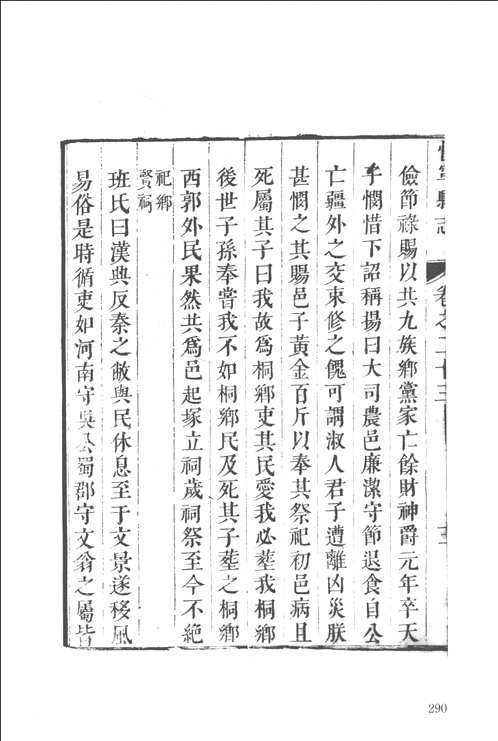 寧縣志
卷之二十三
儉節祿賜以共九族鄉黨家亡餘財神爵元年卒天
子憫惜下詔稱揚曰大司農邑廉潔守節退食自公
亡疆外之交束修之餽可謂淑人君子遭離凶災朕
甚憫之其賜邑子黃金百斤以奉其祭祀初邑病且
死屬其子曰我故爲桐鄉吏其民愛我必塟我桐鄉
後世子孫奉嘗我不如桐鄉民及死其子塟之桐鄉
西郭外民果然共爲邑起塚立祠歲祠祭至今不絶
祀鄉
賢祠
班氏曰漢興反秦之敝與民休息至于文景遂移風
易俗是時循吏如河南守吳公蜀郡守文翁之屬皆
290